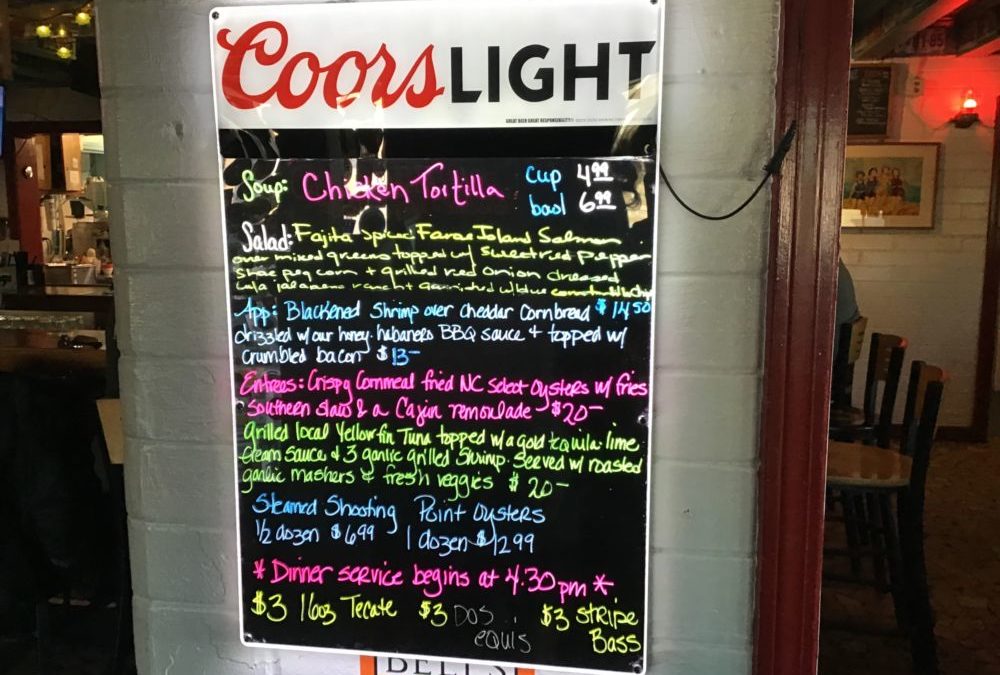 Coors LIGHT
GREAT BEER GREAT RESPONSIBILITY
Soup: Chicken Tortilla cup 4.99
bowl 6.99
Salad: Fajita Spiced Faroe Island Salmon
over mixed greens topped w/ sweet red pepper
shoe peg corn + grilled red onion dressed
jalapeno ranch + garnished w/ blue corn tortilla chips
$14.50
App: Blackened Shrimp over cheddar Cornbread
drizzled w/ our honey habanero BBQ sauce + topped w/
crumbled bacon $13-
Entrees: Crispy Cornmeal fried NC select oysters w/ fries
southern slaw & a Cajun remoulade $20-
grilled local Yellowfin Tuna topped w/ a gold tequila lime
cream sauce & 3 garlic grilled Shrimp. served w/ roasted
garlic mashers & fresh veggies $20-
Steamed Shooting Point Oysters
1/2 dozen $6.99 1 dozen $12.99
* Dinner service begins at 4:30 pm *
$3 16oz Tecate $3 DOS equis $3 STRIPE Bass
BELL'S